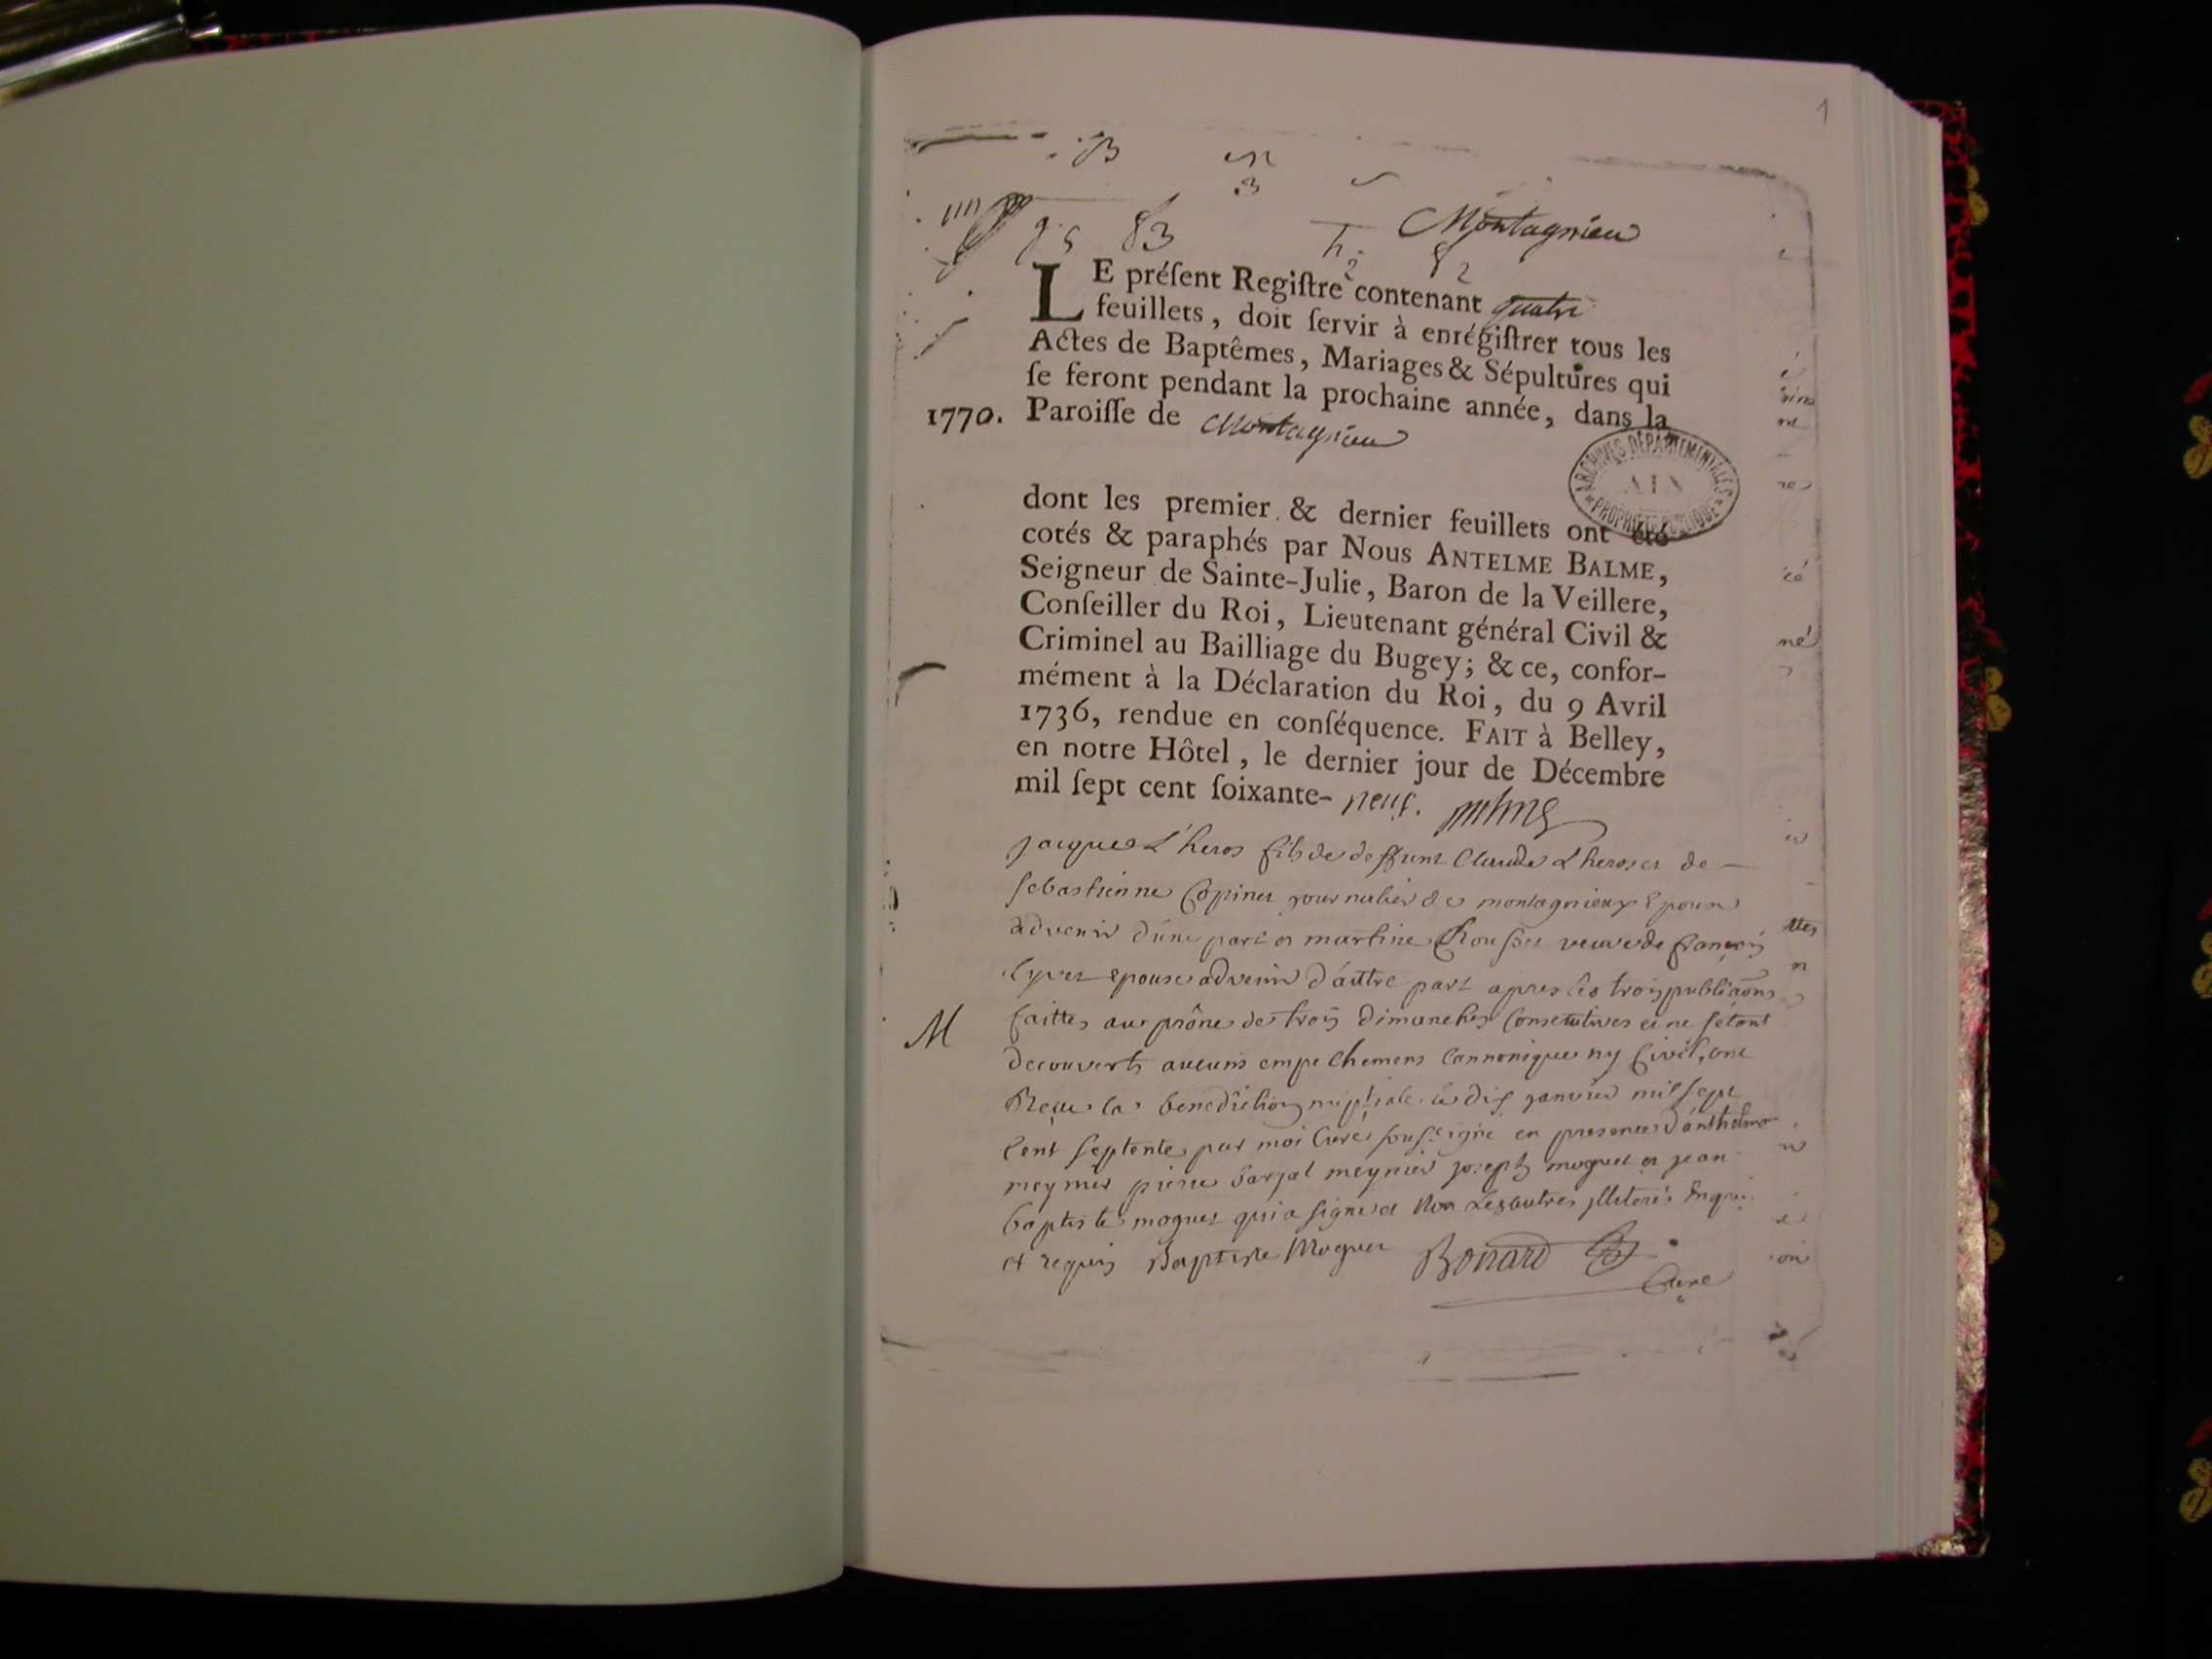 1
B
3
83
2
82
Montagnieu
LE préſent Regiſtre contenant quatre
feuillets, doit ſervir à enrégiſtrer tous les
Actes de Baptêmes, Mariages & Sépultures qui
ſe feront pendant la prochaine année, dans la
1770. Paroiſſe de Montagnieu
ARCHIVES DÉPARTEMENTALES
AIN
PROPRIÉTÉ PUBLIQUE
dont les premier & dernier feuillets ont été
cotés & paraphés par Nous ANTELME BALME,
Seigneur de Sainte-Julie, Baron de la Veillere,
Conſeiller du Roi, Lieutenant général Civil &
Criminel au Bailliage du Bugey; & ce, confor-
mément à la Déclaration du Roi, du 9 Avril
1736, rendue en conſéquence. FAIT à Belley,
en notre Hôtel, le dernier jour de Décembre
mil ſept cent ſoixante- neuf.
jacques L'heros fils de deffunt Claude L'heros et de
sebastienne Copinet journalier de montagnieux Epoux
advenir d'une part et martine veuve de françois
epouse advenir d'autre part apres les trois publicaõns
M faittes aux prônes de trois dimanches Consecutives et ne s'étant
decouverts aucuns empechemens Cannonique ny Civil, ont
Reçue la benediction nuptiale le dix janvier mil sept
Cent septente par moi Curé soussigné en presences d'anthelme
meynier pierre barjat meynier joseph moguet et jean
baptiste moguet qui a signé et Non Les autres jlliterés Enquis
et requis Baptiste Moguet Bonard Curé